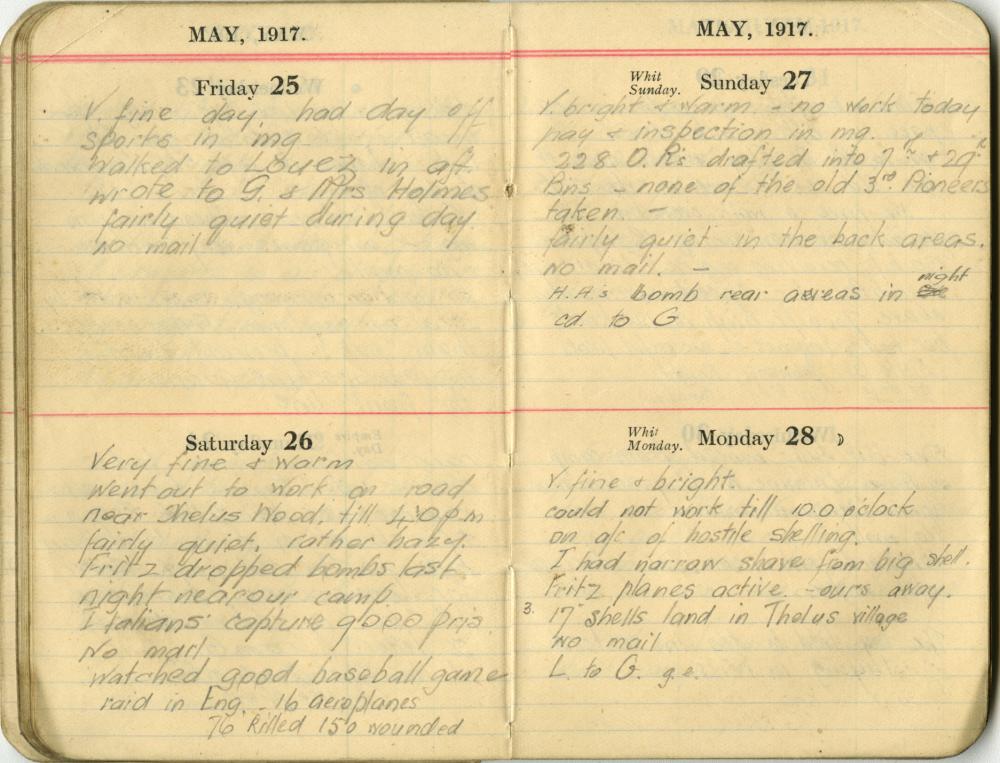 MAY, 1917.
Friday 25
V. fine day, had day off
sports in mg.
walked to Louez in aft.
wrote to G. & Mrs Holmes
fairly quiet during day
no mail
Saturday 26
Very fine & warm
went out to work on road
near Thelus Wood, till 4.0 pm
fairly quiet, rather hazy.
Fritz dropped bombs last
night near our camp.
Italians capture 9000 pris.
No mail
watched good baseball game
raid in Eng. - 16 aeroplanes
76 killed 150 wounded
MAY, 1917.
Whit Sunday. Sunday 27
V. bright & warm - no work today
pay & inspection in mg.
228 O.R's drafted into 7th & 29th
Bns - none of the old 3rd Pioneers
taken -
fairly quiet in the back areas.
No mail. -
H.A.s bomb rear areas in night
cd. to G
Whit Monday. Monday 28
V. fine & bright.
could not work till 10.0 o'clock
on a/c of hostile shelling.
I had narrow shave from big shell.
Fritz planes active - ours away.
3. 17" shells land in Thelus village
No mail
L. to G. g.e.